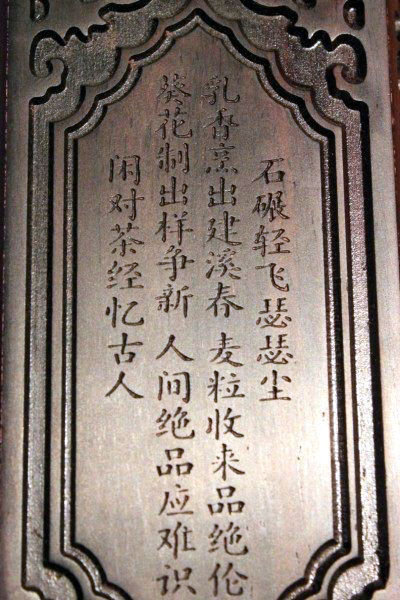 石碾轻飞瑟瑟尘
乳香烹出建溪春 麦粒收来品绝伦
葵花制出样争新 人间绝品应难识
闲对茶经忆古人